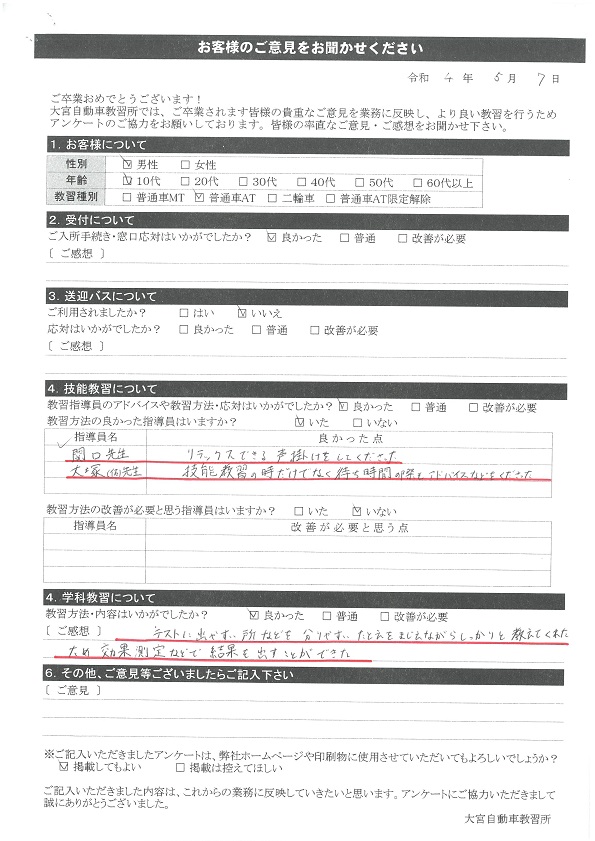 お客様のご意見をお聞かせください
令和 4 年 5 月 7 日
ご卒業おめでとうございます！
大宮自動車教習所では、ご卒業されます皆様の貴重なご意見を業務に反映し、より良い教習を行うため
アンケートのご協力をお願いしております。皆様の率直なご意見・ご感想をお聞かせ下さい。
1. お客様について
性別 ☑ 男性 □ 女性
年齢 ☑ 10代 □ 20代 □ 30代 □ 40代 □ 50代 □ 60代以上
教習種別 □ 普通車MT ☑ 普通車AT □ 二輪車 □ 普通車AT限定解除
2. 受付について
ご入所手続き・窓口応対はいかがでしたか？ ☑ 良かった □ 普通 □ 改善が必要
〔 ご感想 〕
3. 送迎バスについて
ご利用されましたか？ □ はい ☑ いいえ
応対はいかがでしたか？ □ 良かった □ 普通 □ 改善が必要
〔 ご感想 〕
4. 技能教習について
教習指導員のアドバイスや教習方法・応対はいかがでしたか？ ☑ 良かった □ 普通 □ 改善が必要
教習方法の良かった指導員はいますか？ ☑ いた □ いない
指導員名 良かった点
関口先生 リラックスできる声掛けをしてくださった
大塚 先生 技能教習の時だけでなく待ち時間の際もアドバイスなどをくださった
教習方法の改善が必要と思う指導員はいますか？ □ いた ☑ いない
指導員名 改善が必要と思う点
4. 学科教習について
教習方法・内容はいかがでしたか？ ☑ 良かった □ 普通 □ 改善が必要
〔 ご感想 〕 テストに出やすい所などを分りやすいたとえをまじえながらしっかりと教えてくれた
ため効果測定などで結果を出すことができた
6. その他、ご意見等ございましたらご記入下さい
〔 ご意見 〕
※ご記入いただきましたアンケートは、弊社ホームページや印刷物に使用させていただいてもよろしいでしょうか？
☑ 掲載してもよい □ 掲載は控えてほしい
ご記入いただきました内容は、これからの業務に反映していきたいと思います。アンケートにご協力いただきまして
誠にありがとうございました。
大宮自動車教習所